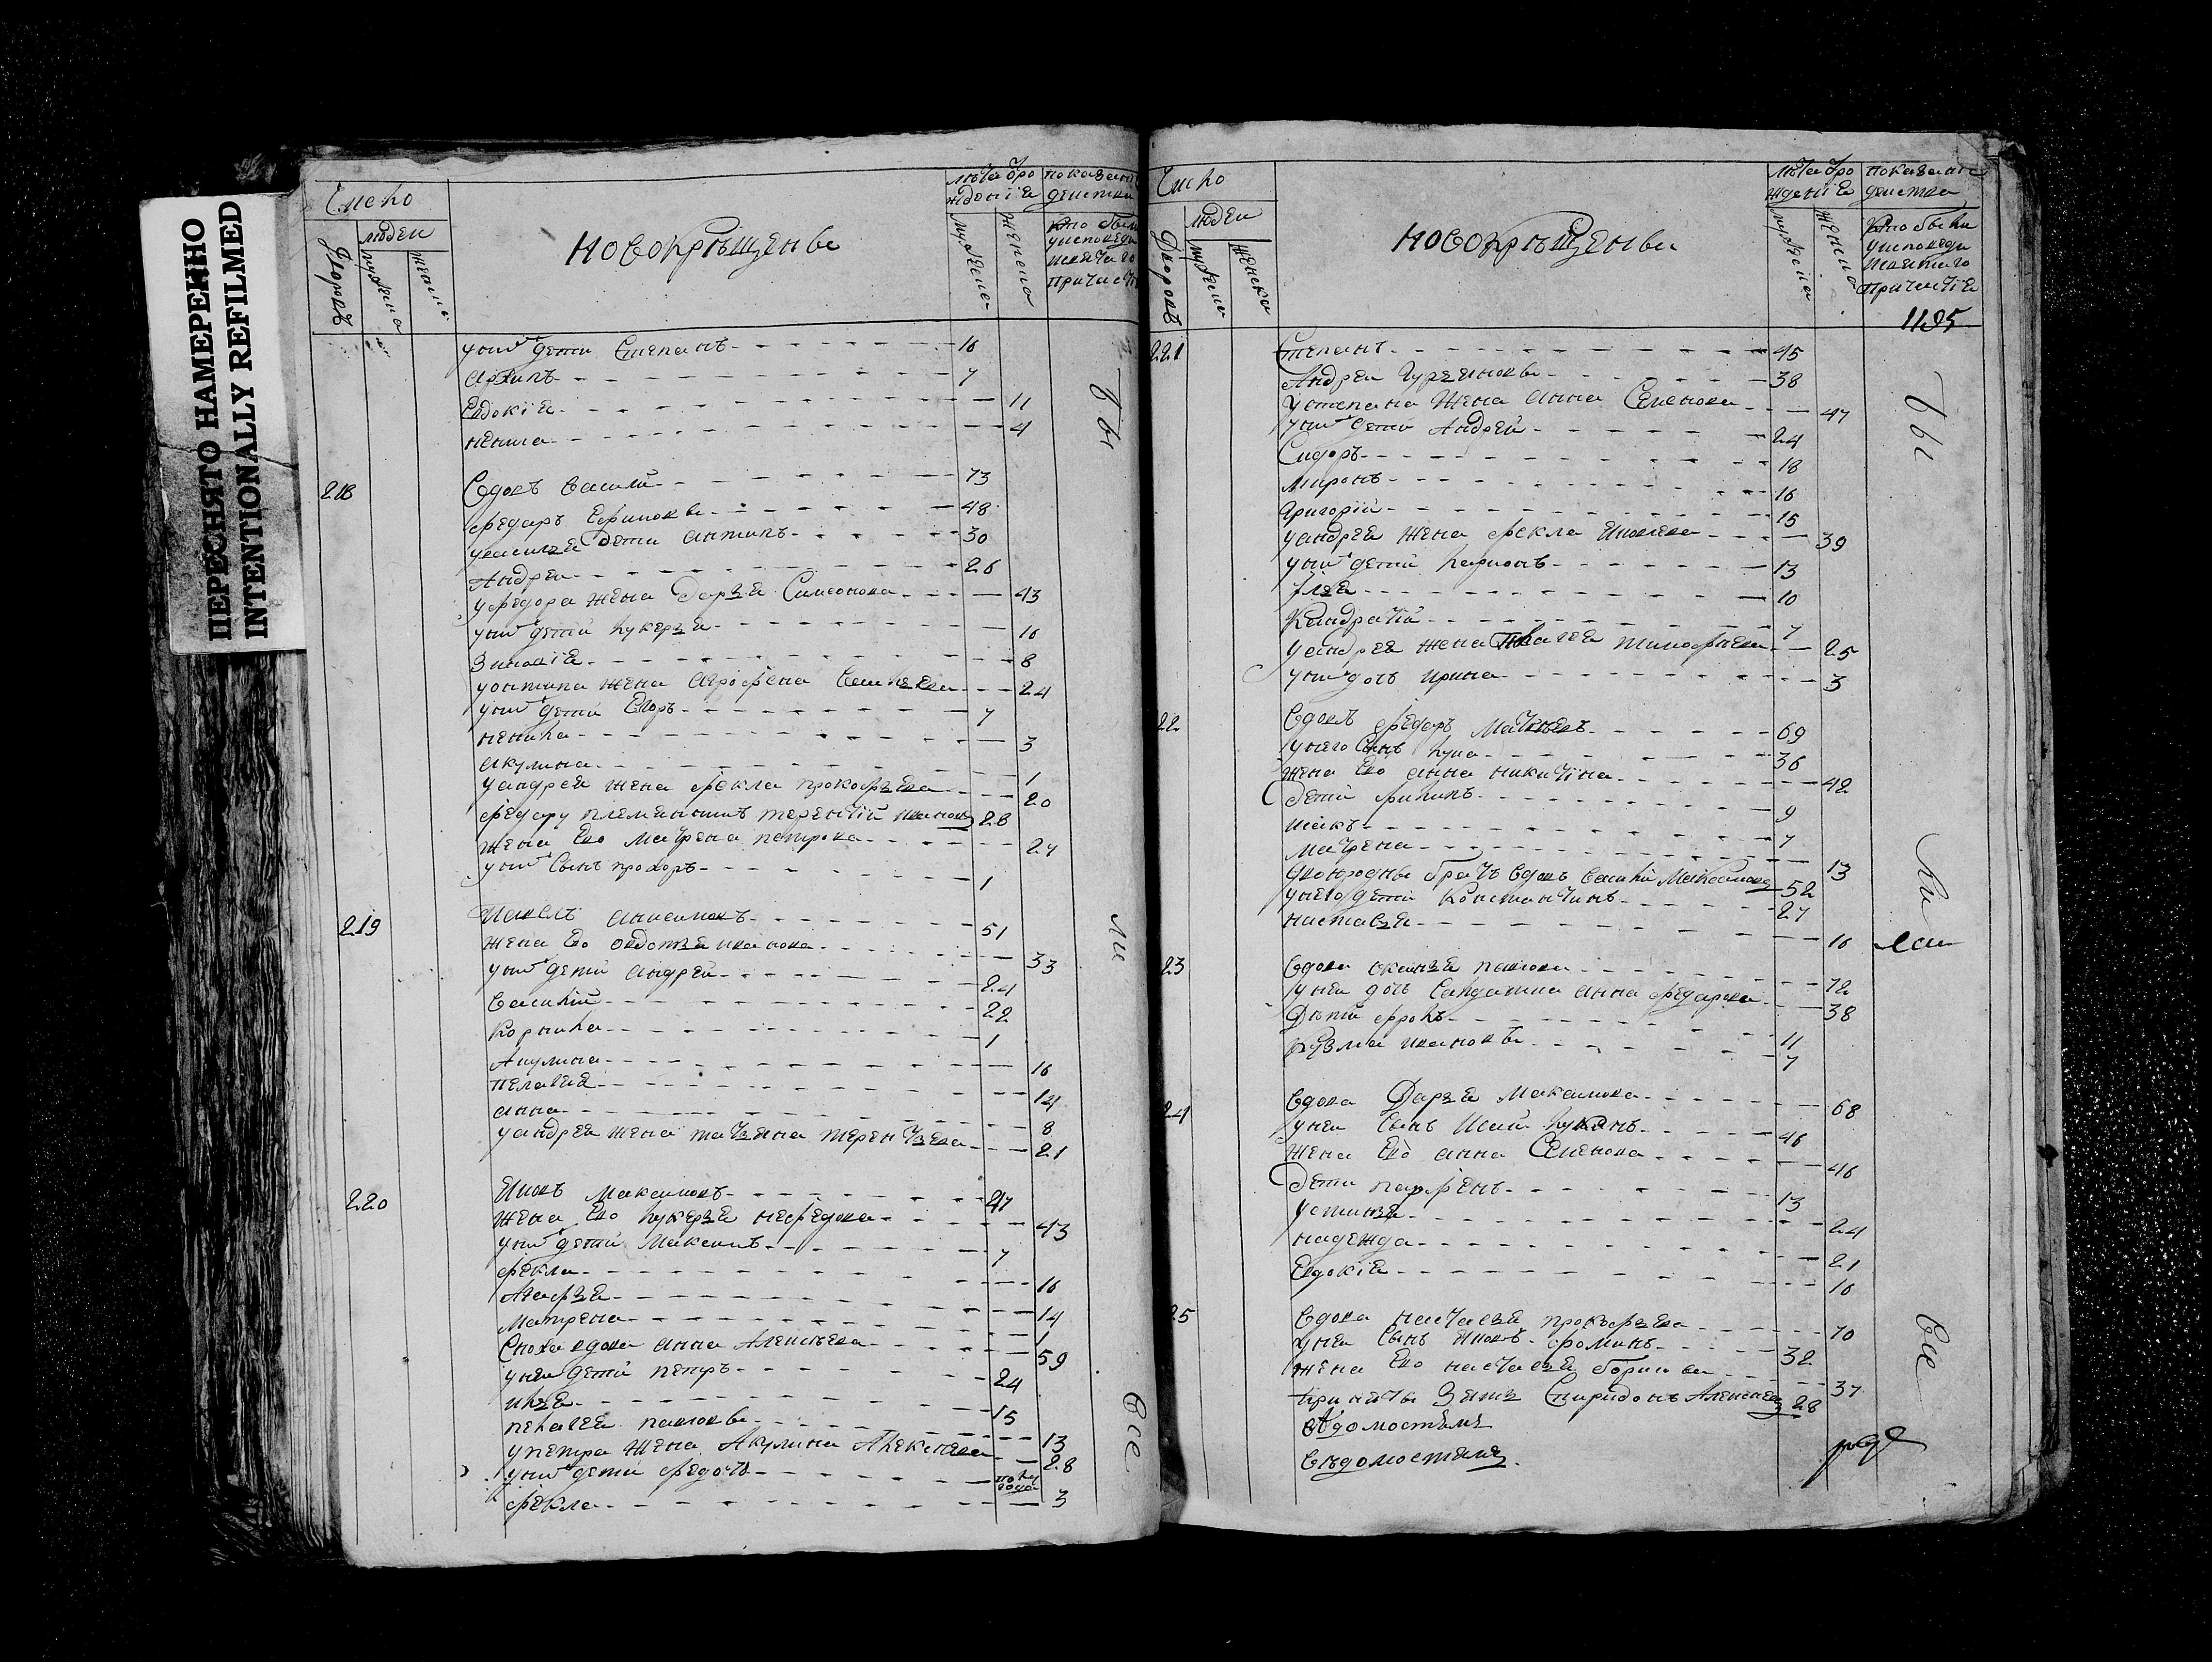 ПЕРЕСНЯТО НАМЕРЕННО
INTENTIONALLY REFILMED
Число
людей
новокрѣщены
дворовъ
мужеска
женска
лѣта от ро
ждениiя
показание
действа
кто были
у исповеди
и святаго
причастiя
у них дети Степанъ 16
Архипъ 7
Евдокiя 11
ненила 4
218
Вдовъ василий 73
федоръ Ефимовы 48
у василья дети антипъ 30
Андрей 26
у федора жена Дарья Симеонова 43
у них дети лукерья 16
Зиновiя 8
у онтипа жена Агрофена Васильева 24
у них дети Егоръ 7
ненила 3
акулина 1
у андрея жена фекла прокофьева 20
федору племянникъ терентiй ивановъ 28
жена Ево матрена петрова 27
у них Сынъ прохоръ 1
219
Павелъ анисимовъ 51
жена Ево овдотья иванова 33
у них дети андрей 24
василий 22
корнила 1
Акулина 16
пелагея 14
анна 8
у андрея жена татьяна терентьева 21
220
Яковъ Максимовъ 47
жена Ево лукерья нефедова 43
у них дети Максимъ 7
фекла 16
Агафья 14
Матрена 1
Сноха вдова анна Алексеева 59
у неи дети петръ 24
илья 15
пелагея павловы 13
у петра жена Акулина Алексеева 28
у них дети федотъ полу года
фекла 3
бы
ли
все
Число
людей
новокрѣщены
дворовъ
мужеска
женска
лѣта от ро
жденiя
показание
действа
кто были
у исповеди
и святаго
причастiя
1195
221
Степанъ 45
Андрей Гурьяновы 38
у степана жена анна Семенова 47
у них дети Андрей 24
Сидоръ 18
Миронъ 16
Григорiй 15
у андрея жена фекла Яковлева 39
у них дети ларионъ 13
Илья 10
Кандратiй 7
у андрея жена пелагея тимофеева 25
у них дочь ирина 3
22
Вдовъ федоръ Матвеевъ 69
у него Сынъ лука 36
жена Ево анна никитина 42
дети филипъ 9
исакъ 7
матрена 13
двоюродны братъ вдовъ василий Максимовъ 52
у него дети Константинъ 27
настасья 16
23
вдова оксинья павлова 72
у неи дочь Салдатка анна федорова 38
Дѣти фролъ 11
кузма ивановы 7
24
вдова Дарья Максимова 68
у неи Сынъ Исай лукянъ 46
жена Ево анна Семенова 46
Дети парфенъ 13
устинья 24
надежда 21
Евдокiя 16
25
вдова настасья прокофьева 70
у неи Сынъ Яковъ фоминъ 32
жена Ево настасья борисова 37
принятой Зять Спиридонъ Алексеевъ 28
вѣдомостѣмъ
вѣдомостемъ
бы
ли
все